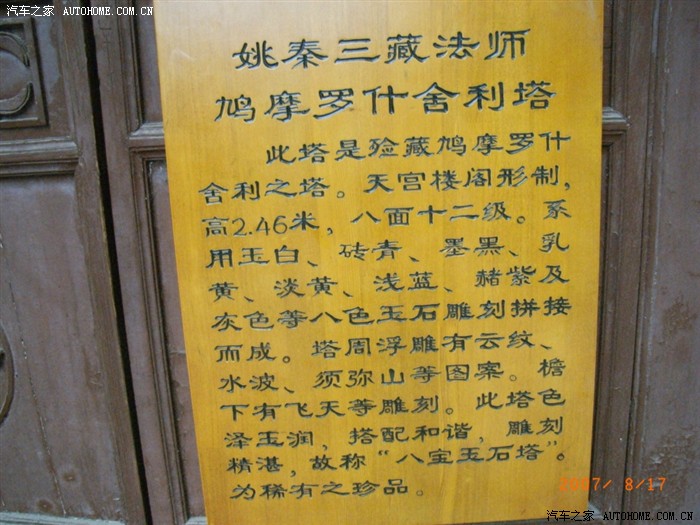 汽车之家 AUTOHOME.COM.CN
姚秦三藏法师
鸠摩罗什舍利塔
此塔是殓藏鸠摩罗什
舍利之塔。天宫楼阁形制，
高2.46米，八面十二级。系
用玉白、砖青、墨黑、乳
黄、淡黄、浅蓝、赭紫及
灰色等八色玉石雕刻拼接
而成。塔周浮雕有云纹、
水波、须弥山等图案。檐
下有飞天等雕刻。此塔色
泽玉润，搭配和谐，雕刻
精湛，故称“八宝玉石塔”。
为稀有之珍品。
2007/ 8/17
汽车之家 AUTOHOME.COM.CN